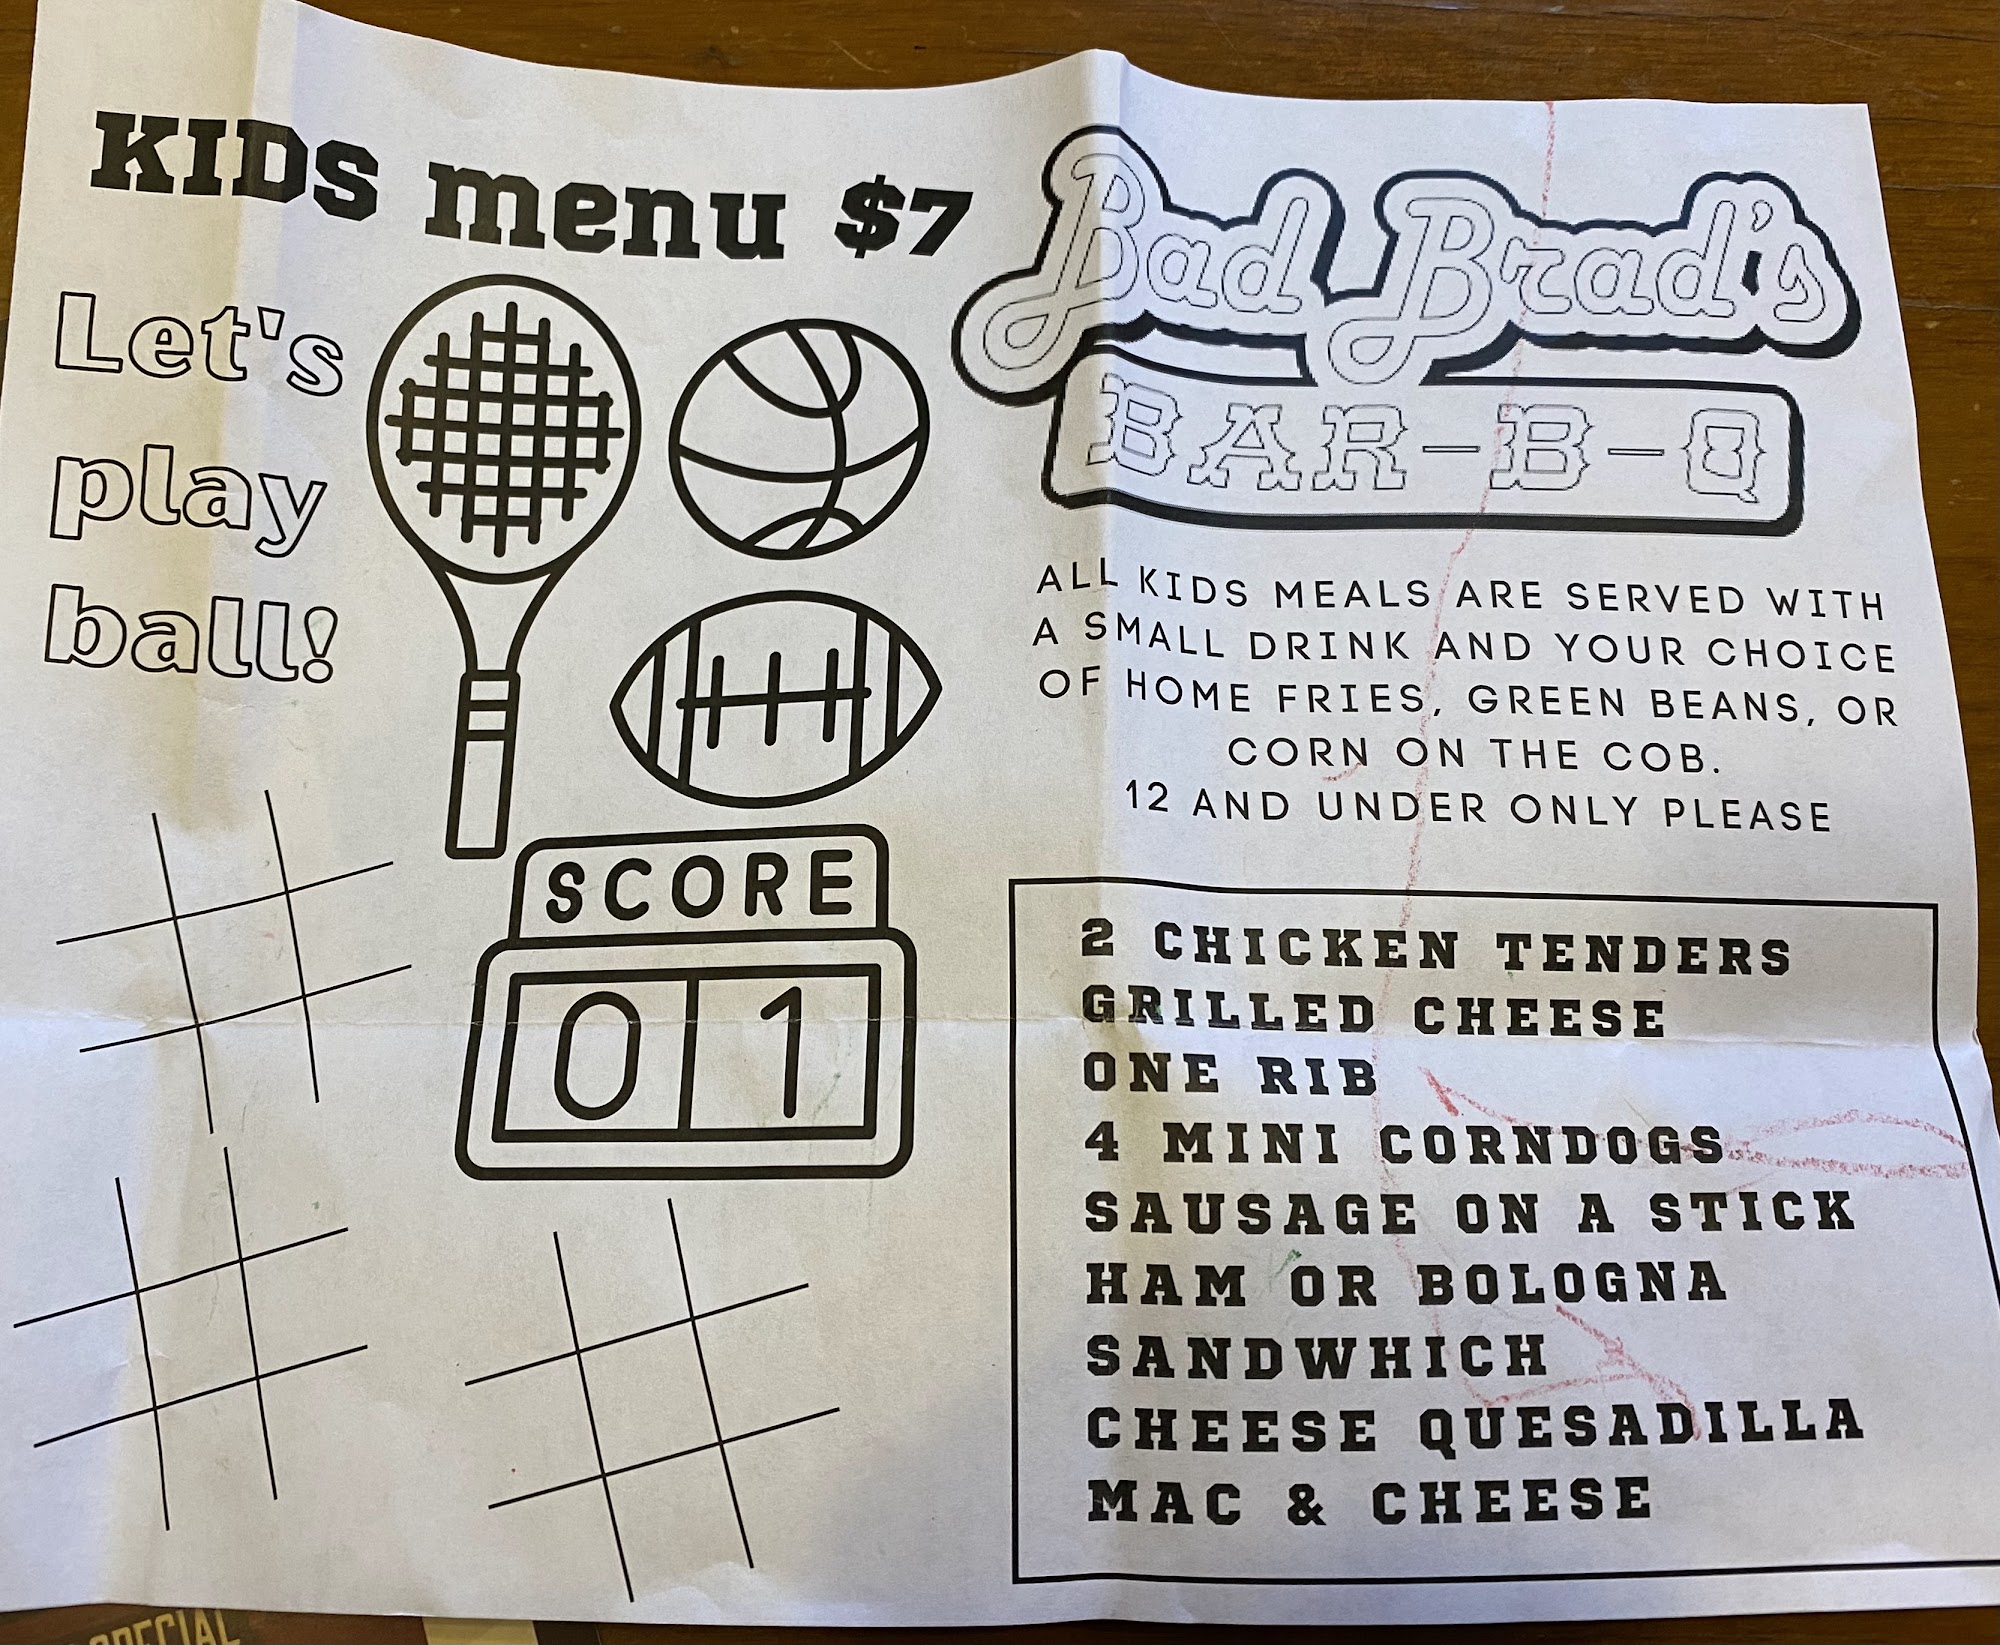 KIDS menu $7
Let's
play
ball!
SCORE
0 1
Bad Brad's
BAR-B-Q
ALL KIDS MEALS ARE SERVED WITH
A SMALL DRINK AND YOUR CHOICE
OF HOME FRIES, GREEN BEANS, OR
CORN ON THE COB.
12 AND UNDER ONLY PLEASE
2 CHICKEN TENDERS
GRILLED CHEESE
ONE RIB
4 MINI CORNDOGS
SAUSAGE ON A STICK
HAM OR BOLOGNA
SANDWHICH
CHEESE QUESADILLA
MAC & CHEESE
SPECIAL